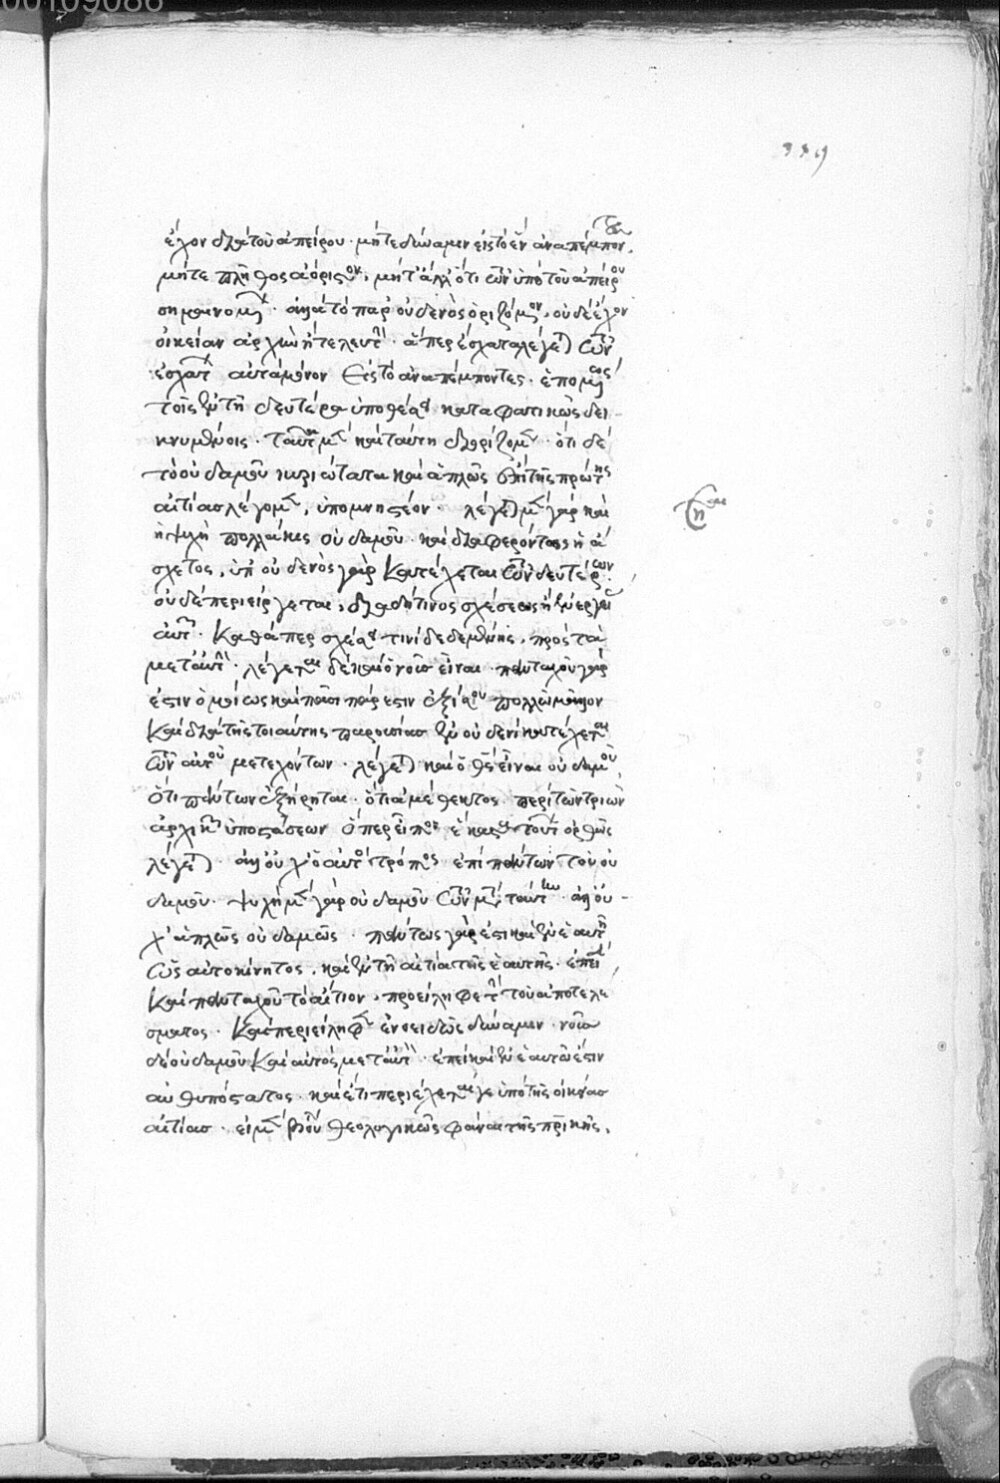 00109086
έχον διὰ τοῦ ἀπείρου. μήτε δύναμιν εἰς τὸ ἓν ἀναπέμπον,
μήτε πλῆθος ἀόριστον, μήτ' ἄλλ' ὅτι τῶν ὑπὸ τοῦ ἀπείρου
σημαινομένων. ἀλλὰ τὸ παρ' οὐδενὸς ὁριζόμενον, οὐδὲ ἔχον
οἰκείαν ἀρχὴν ἢ τελευτήν. ἅπερ ἔσχατα λέγεται τῶν
ἐσχάτων αὐτὰ μόνον εἰς τὸ ἀναπέμποντες. ἑπομένως
τοῖς ἐν τῇ δευτέρᾳ ὑποθέσει καταφατικῶς δει-
κνυμένοις. ταύτῃ μὲν καὶ ταύτῃ διοριζόμεθα. ὅτι δὲ
τὸ οὐδαμοῦ κυριώτατα καὶ ἁπλῶς ἐπὶ τῆς πρώτης
αἰτίας λέγομεν, ὑπομνηστέον. λέγεται μὲν γὰρ καὶ
ἡ ψυχὴ πολλάκις οὐδαμοῦ. καὶ διαφερόντως ἡ ἄ-
σχετος, ὑπ' οὐδενὸς γὰρ κατέχεται τῶν δευτέρων.
οὐδὲ περιείργεται, διὰ δή τινος σχέσεως ἡ ἐνέργεια
αὐτῆς. καθάπερ σχέσει τινὶ δεδεμένης, πρὸς τὰ
μετ' αὐτήν. λέγεται δὲ καὶ ὁ νοῦς εἶναι πανταχοῦ γάρ
ἐστιν ὁμοίως καὶ πᾶσι πάρεστιν ἐξ ἴσου πολλῷ μᾶλλον
καὶ διὰ τῆς τοιαύτης παρουσίας ἐν οὐδενὶ κατέχεται
τῶν αὐτοῦ μετεχόντων. λέγεται καὶ ὁ θεὸς εἶναι οὐδαμοῦ,
ὅτι πάντων ἐξῄρηται. ὅτι ἀμέθεκτος. περὶ τῶν τριῶν
ἀρχικῶν ὑποστάσεων
λέγεται. ἀλλ' οὐχ ὁ αὐτὸς τρόπος ἐπὶ πάντων τοῦ οὐ-
δαμοῦ. ψυχὴ μὲν γὰρ οὐδαμοῦ τῶν μετ' αὐτήν. ἀλλ' οὐ-
χ' ἁπλῶς οὐδαμῶς. πάντως γάρ ἐστι καὶ ἐν ἑαυτῇ
ὡς αὐτοκίνητος, καὶ ἐν τῇ αἰτίᾳ τῆς ἑαυτῆς. ἐπεὶ
καὶ πανταχοῦ τὸ αἴτιον, προείληφε τὴν τοῦ ἀποτελέ-
σματος. καὶ περιείληφεν ἑνοειδῶς δύναμιν. νοῦς
δὲ οὐδαμοῦ καὶ αὐτὸς μετ' αὐτήν. ἐπεὶ καὶ ἐν ἑαυτῷ ἐστιν
αὐθυπόστατος. καὶ ἔτι περιέχεται γε ὑπὸ τῆς οἰκείας
αἰτίας. εἰ μὲν βούλει θεολογικῶς φάναι τῆς πατρικῆς,